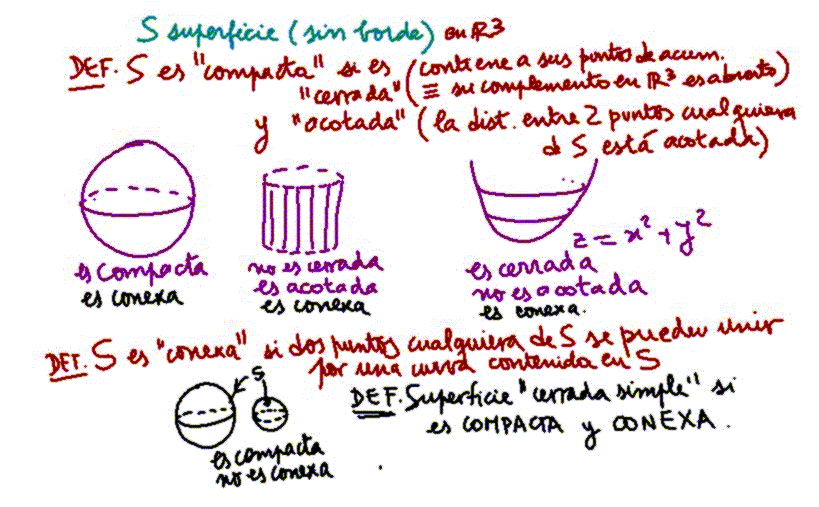 S superficie (sin borde) en R³
DEF. S es "compacta" si es
"cerrada" (contiene a sus puntos de acum.
≡ su complemento en R³ es abierto)
y "acotada" (la dist. entre 2 puntos cualquiera
d S está acotada)
z = x² + y²
es compacta
es conexa
no es cerrada
es acotada
es conexa
es cerrada
no es acotada
es conexa.
DEF. S es "conexa" si dos puntos cualquiera de S se pueden unir
por una curva contenida en S
S
es compacta
no es conexa
DEF. Superficie "cerrada simple" si
es COMPACTA y CONEXA.